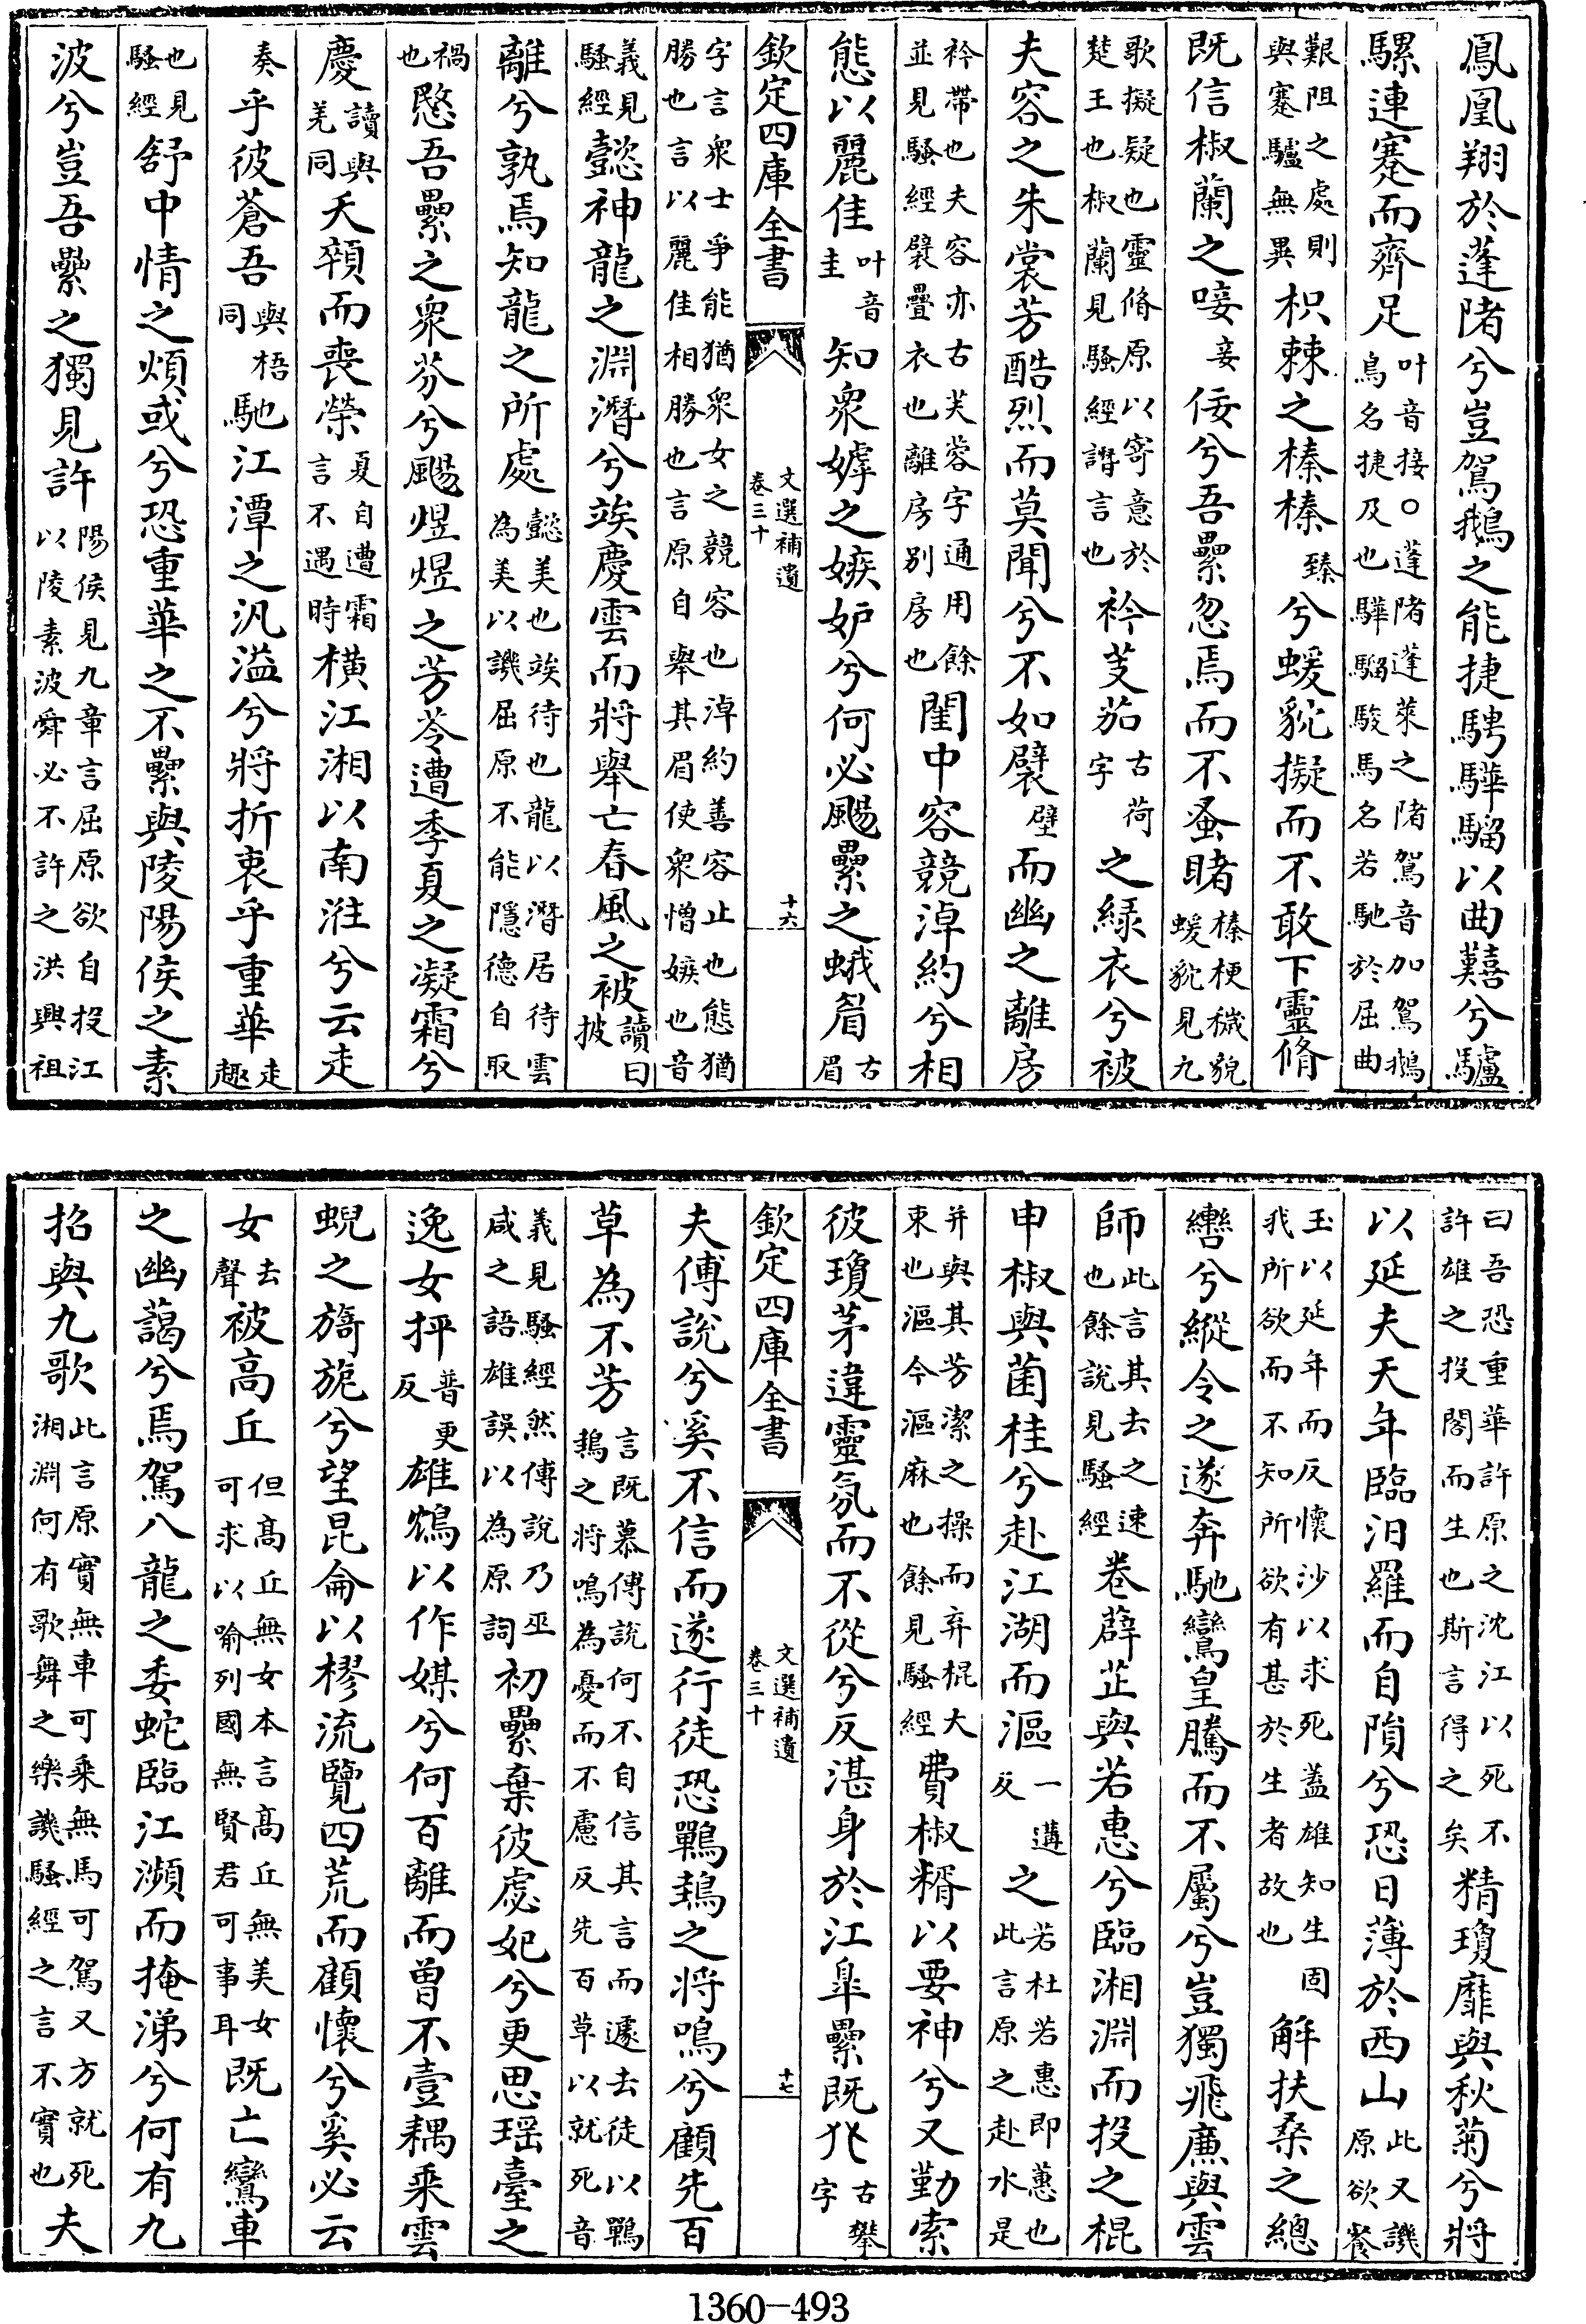 鳳凰翔於蓬陼兮豈駕鵝之能捷騁驊騮以曲囏兮驢
騾連蹇而齊足叶音接○蓬陼蓬萊之陼駕音加駕鵝鳥名捷及也驊騮駿馬名若馳於屈曲
艱阻之處則與蹇驢無異枳棘之榛榛臻兮蝯貁擬而不敢下靈脩
既信椒蘭之唼妾佞兮吾纍忽焉而不蚤睹榛梗穢貌蝯貁見九
歌擬疑也靈脩原以寄意於楚王也椒蘭見騷經譖言也衿芰茄古荷字之綠衣兮被
夫容之朱裳芳酷烈而莫聞兮不如襞壁而幽之離房
衿帶也夫容亦古芙蓉字通用餘並見騷經襞疊衣也離房别房也閨中容競淖約兮相
態以麗佳叶音圭知衆嫭之嫉妒兮何必颺纍之蛾眉古眉
欽定四庫全書 文選補遺 卷三十 十六
字言衆士爭能猶衆女之競容也淖約善容止也態猶勝也言以麗佳相勝也言原自舉其眉使衆憎嫉也音
義見騷經懿神龍之淵潛兮竢慶雲而將舉亡春風之被讀曰披
離兮孰焉知龍之所處懿美也竢待也龍以潛居待雲為美以譏屈原不能隱德自取
禍也愍吾纍之衆芬兮颺煜煜之芳苓遭季夏之凝霜兮
慶讀與羌同夭顇而喪榮夏自遭霜言不遇時橫江湘以南淮兮云走
奏乎彼蒼吾與梧同馳江潭之汎溢兮將折衷乎重華走趣
也見騷經舒中情之煩或兮恐重華之不纍與陵陽侯之素
波兮豈吾纍之獨見許陽侯見九章言屈原欲自投江以陵素波舜必不許之洪興祖
曰吾恐重華許原之沈江以死不許雄之投閣而生也斯言得之矣精瓊靡與秋菊兮將
以延夫天年臨汨羅而自隕兮恐日薄於西山此又譏原欲餐
玉以延年而反懷沙以求死盖雄知生固我所欲而不知所欲有甚於生者故也解扶桑之總
轡兮縱令之遂奔馳鸞皇騰而不屬兮豈獨飛廉與雲
師此言其去之速也餘說見騷經卷薜芷與若惠兮臨湘淵而投之棍
申椒與菌桂兮赴江湖而漚一遘反之若杜若惠即蕙也此言原之赴水是
并與其芳潔之操而弃棍大束也漚今漚麻也餘見騷經費椒糈以要神兮又勤索
彼瓊茅違靈氛而不從兮反湛身於江臯纍既古攀字
欽定四庫全書 文選補遺 卷三十 十七
夫傅說兮奚不信而遂行徒恐鷤鴂之将鳴兮顧先百
草為不芳言既慕傅說何不自信其言而遽去徒以鷤鴂之将鳴為憂而不慮反先百草以就死音
義見騷經然傅說乃巫咸之語雄誤以為原詞初纍棄彼虙妃兮更思瑶臺之
逸女抨普更反雄鴆以作媒兮何百離而曾不壹耦乘雲
蜺之旖旎兮望昆侖以樛流覽四荒而顧懷兮奚必云
女去聲被高丘但高丘無女本言高丘無美女可求以喻列國無賢君可事耳既亡鸞車
之幽藹兮焉駕八龍之委蛇臨江瀕而掩涕兮何有九
招與九歌此言原實無車可乘無馬可駕又方就死湘淵何有歌舞之樂譏騷經之言不實也夫
1360-493